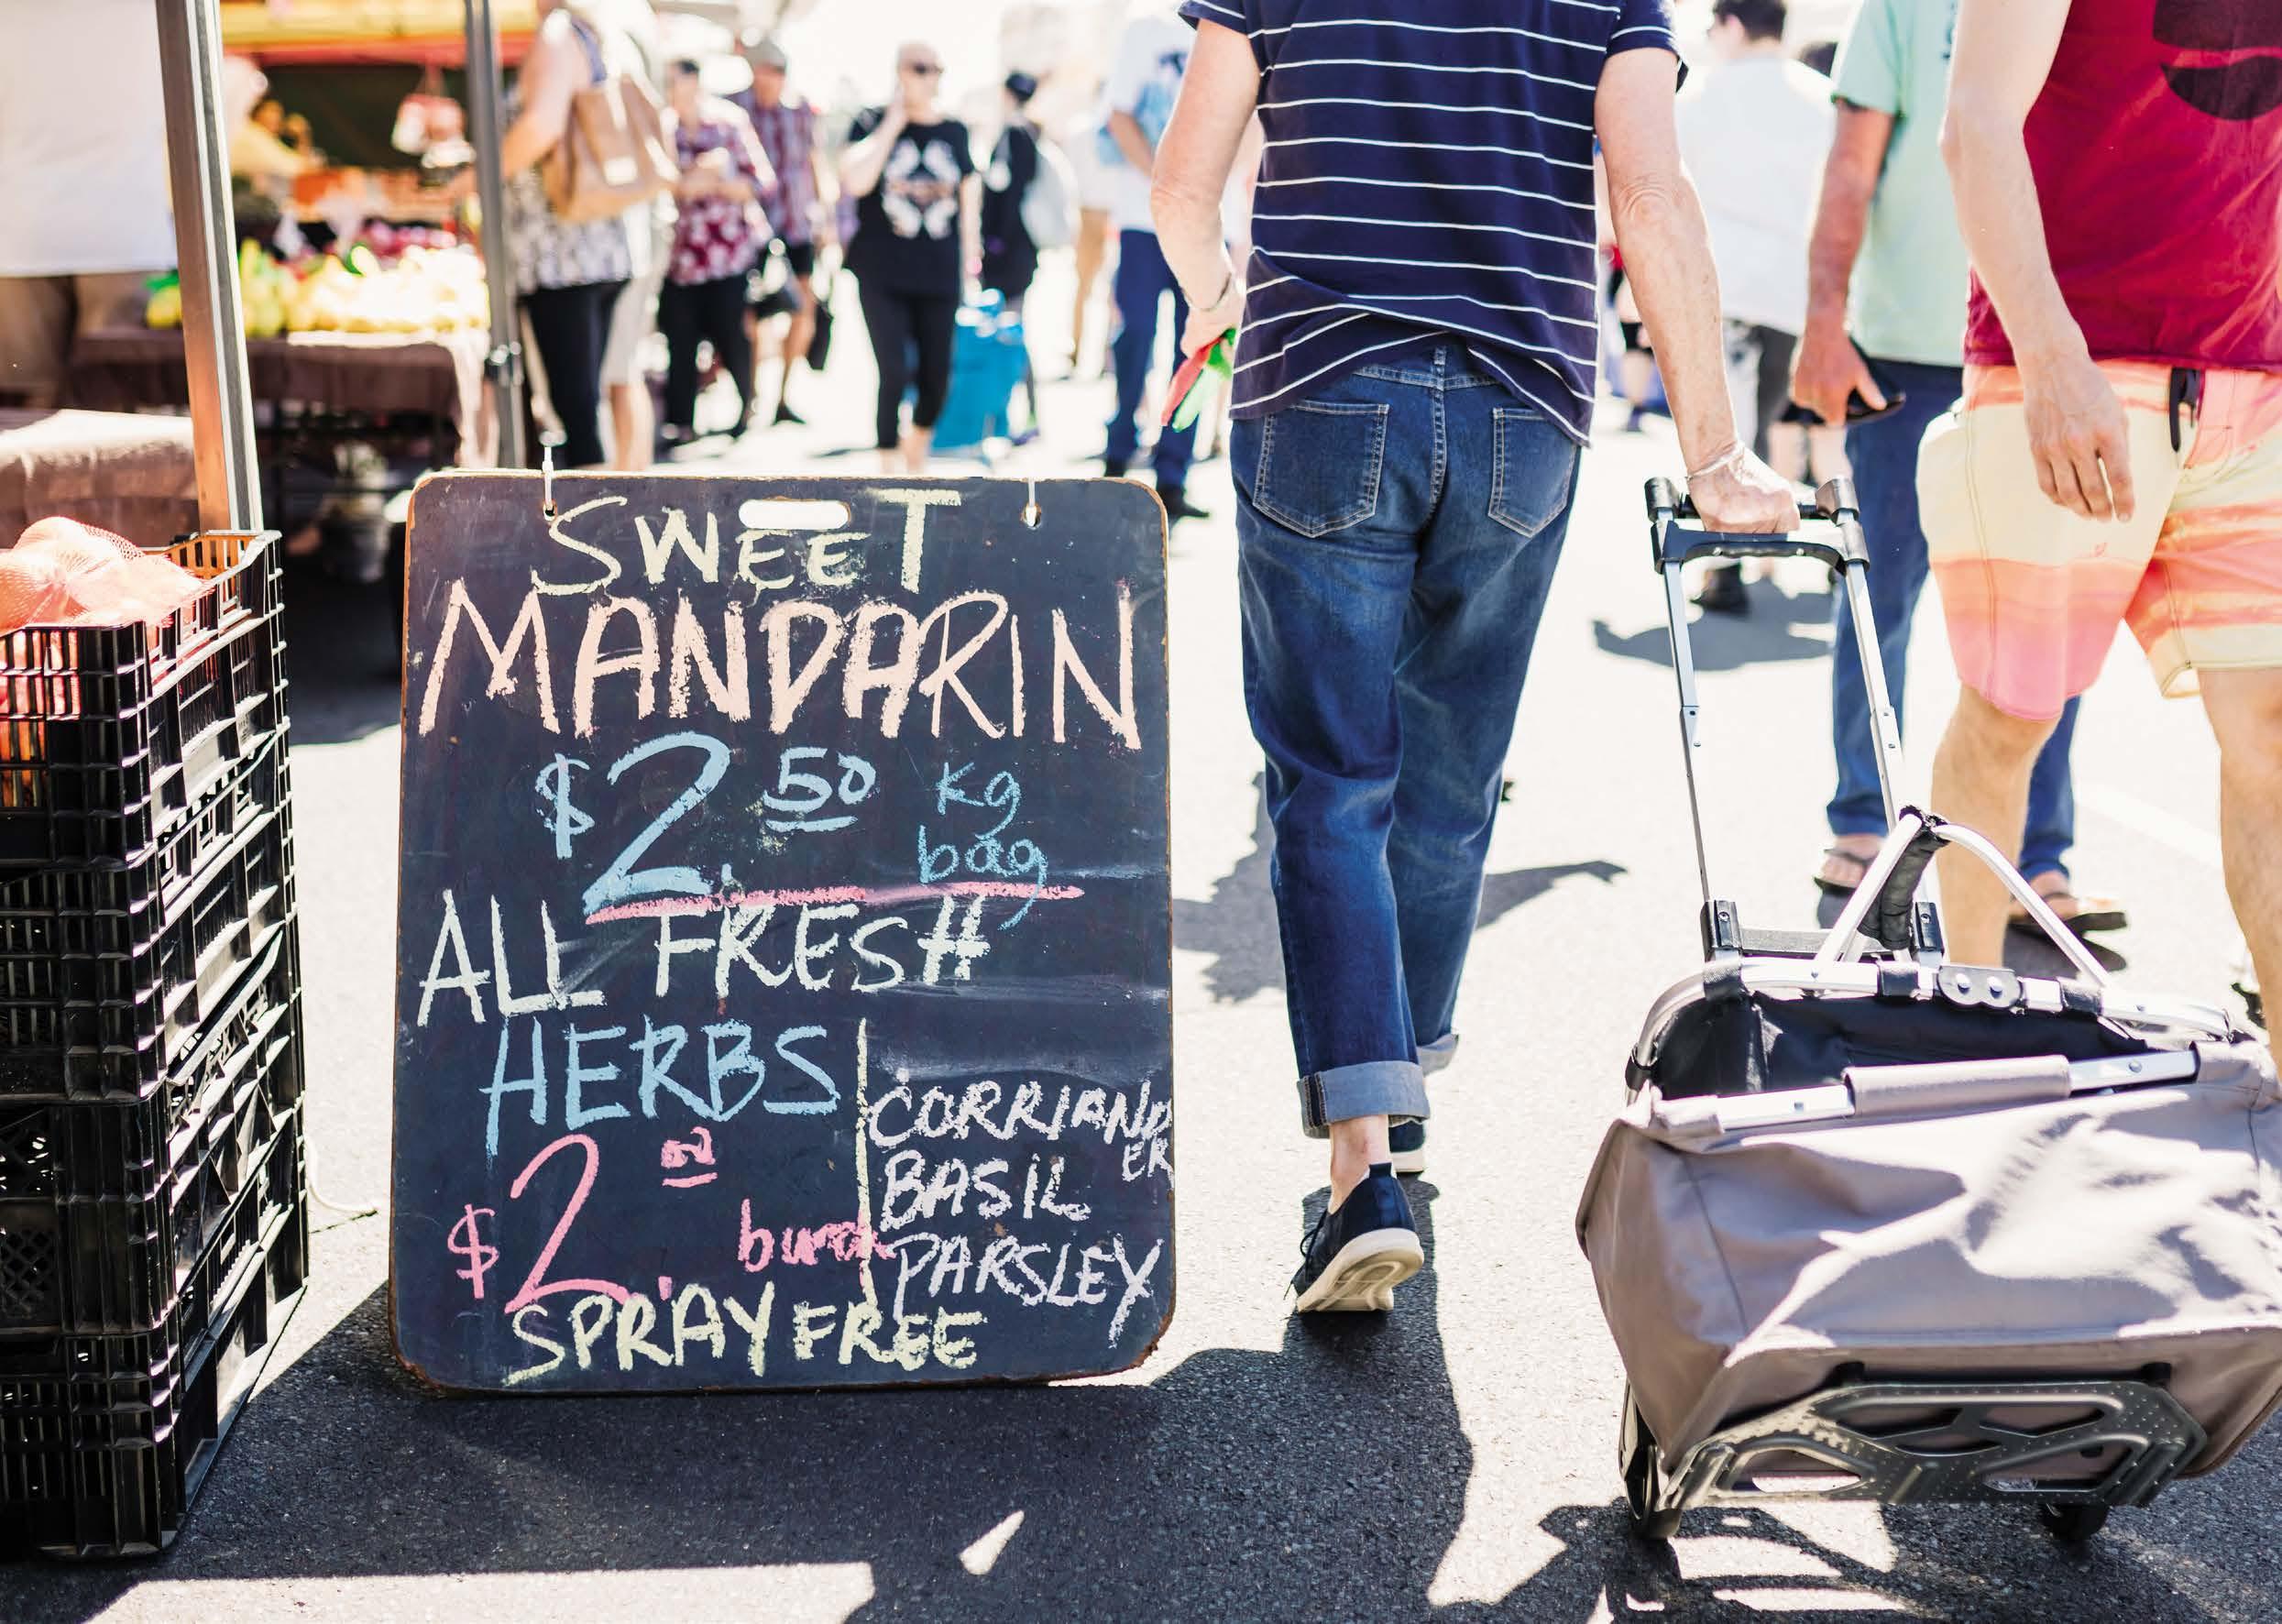 SWEET
MANDARIN
$2.50 kg
bag
ALL FRESH
HERBS
CORRIAND
ER
BASIL
PARSLEY
$2.
SPRAY FREE